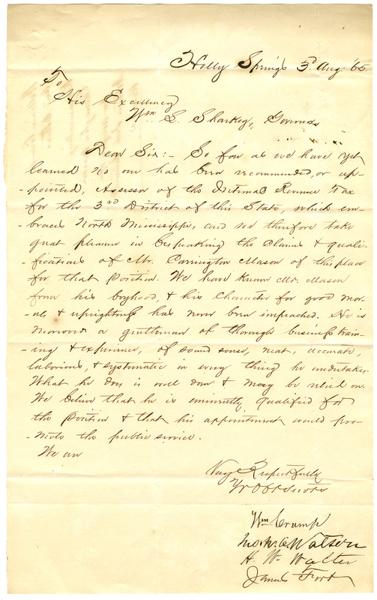 Holly Springs 3d Aug. '65
To
His Excellency
Wm L Sharkey, Governor
Dear Sir:- So far as we have yet
learned no one has been recommended, or ap-
-pointed, Assessor of the Internal Revenue Tax
for the 3rd District of this State, which em-
-braces North Mississippi, and we therefore take
great pleasure in bespeaking the claims & quali-
-fications of Mr. Carrington Mason of this place
for that position. We have known Mr. Mason
from his boyhood, & his character for good mor-
-als & uprightness has never been impeached. He is
moreover a gentleman of thorough business train-
-ing & experience, of sound sense, neat, accurate,
laborious, & systematic in every thing he undertakes.
What he does is well done & may be relied on.
We believe that he is eminently qualified for
the position & that his appointment would pro-
-mote the public service.
We are
Very Respectfully
Yr Obt Servts
Wm Crump
J. W. C. Watson
H. W. Walter
James Fort